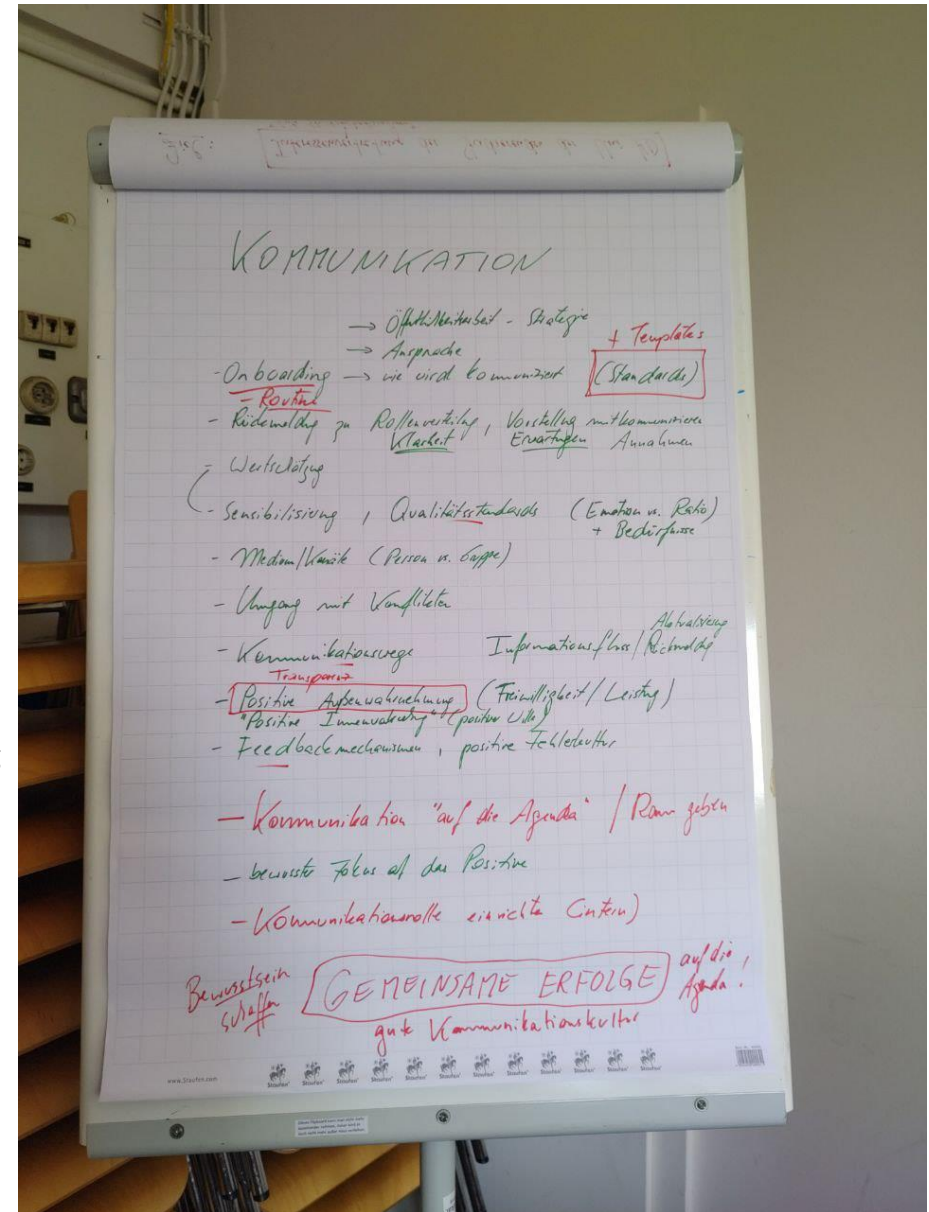 Ziel:
KOMMUNIKATION
→ Öffentlichkeitsarbeit - Strategie
→ Ansprache
+ Templates
- Onboarding → wie wird kommuniziert (Standards)
- Routine
- Rückmeldung zu Rollenverteilung, Vorstellung mitkommunizieren
Klarheit Erwartungen Annahmen
- Wertschätzung
- Sensibilisierung, Qualitätsstandards (Emotion vs. Ratio)
+ Bedürfnisse
- Medium/Kanäle (Person vs. Gruppe)
- Umgang mit Konflikten
Aktualisierung
- Kommunikationswege Informationsfluss / Rückmeldung
Transparenz
- Positive Außenwahrnehmung (Freiwilligkeit / Leistung)
"Positive Innenwahrnehmung" (positiver Wille)
- Feedbackmechanismen, positive Fehlerkultur
- Kommunikation "auf die Agenda" / Raum geben
- bewusster Fokus auf das Positive
- Kommunikationsrolle einrichten (intern)
Bewusstsein schaffen GEMEINSAME ERFOLGE auf die Agenda!
gute Kommunikationskultur
www.Staufen.com Staufen Staufen Staufen Staufen Staufen Staufen Staufen Staufen Staufen Staufen Staufen Staufen